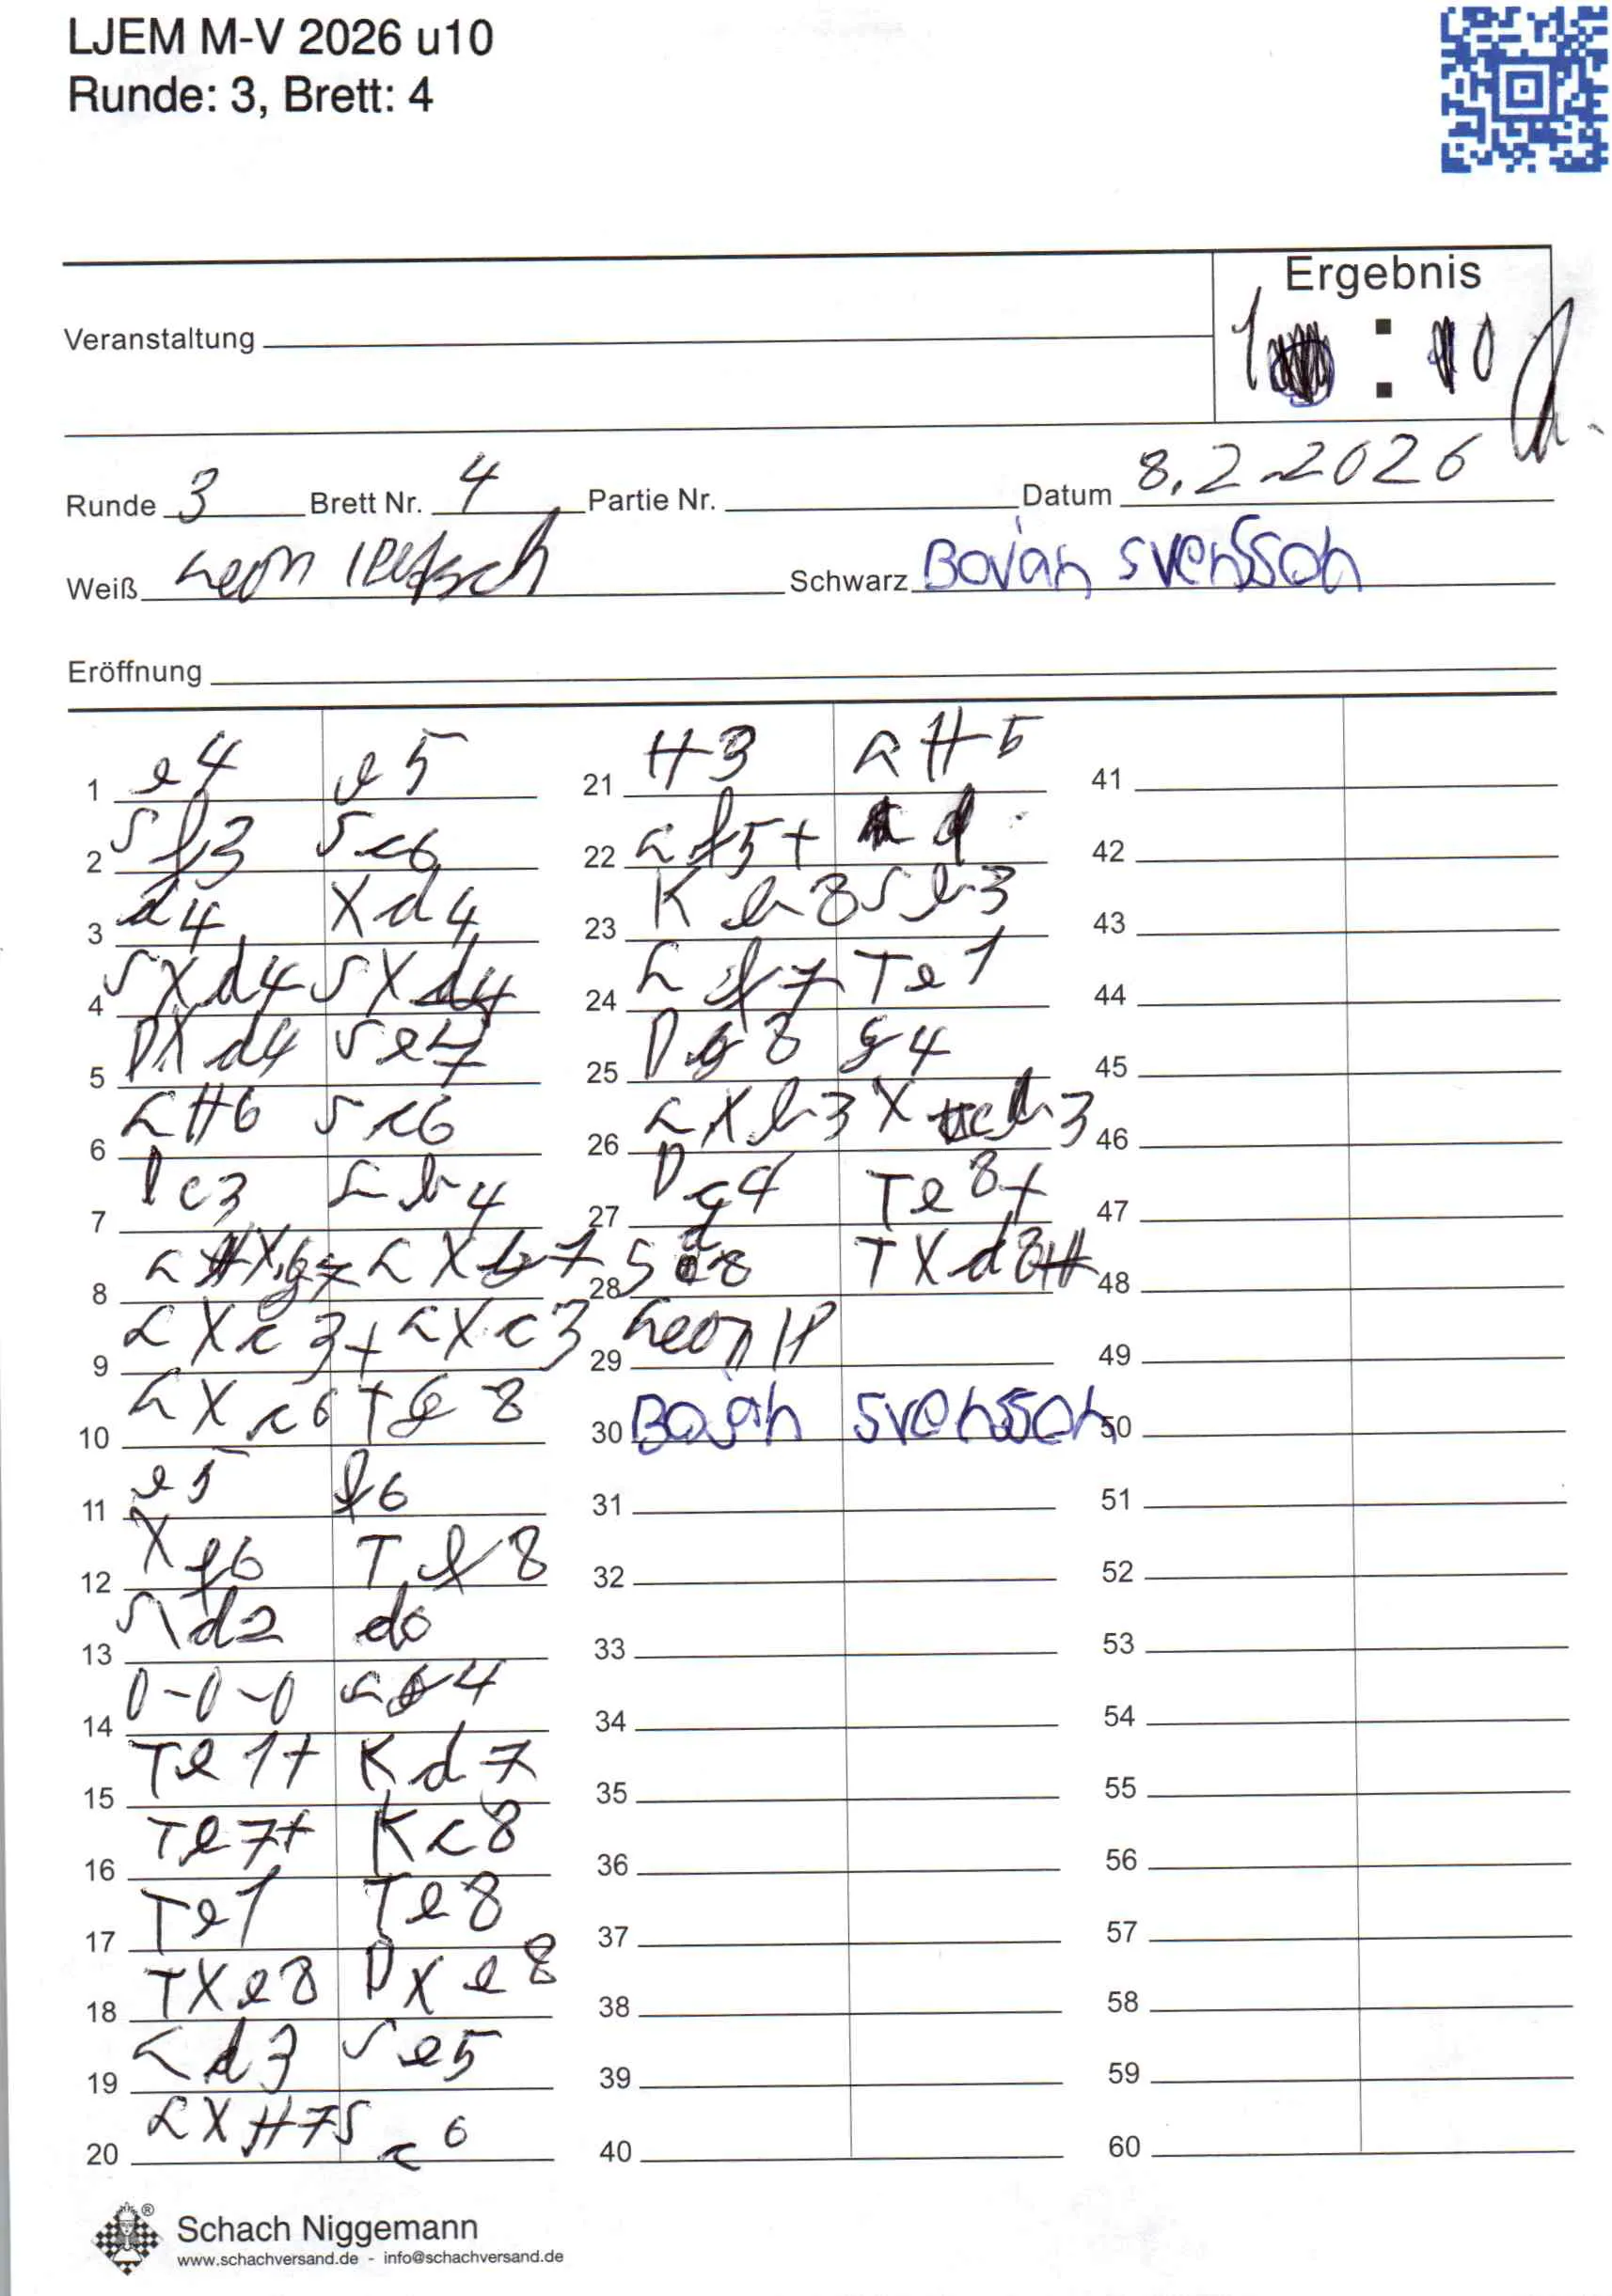 LJEM M-V 2026 u10
Runde: 3, Brett: 4
Ergebnis
Veranstaltung 1 : 0
Runde 3 Brett Nr. 4 Partie Nr. Datum 8.2.2026
Weiß Leon Schwarz Bojan Svensson
Eröffnung
1 e4 e5
2 Sf3 Sc6
3 d4 Xd4
4 SXd4 SXd4
5 DXd4 Se7
6 LH6 Sc6
7 Dc3 Lb4
8 LXg7
9 LXc3+ LXc3
10 LXc6 Tg8
11 e5 f6
12 Xf6 Tf8
13 Sd2 d6
14 0-0-0
15 Te1+ Kd7
16 Te7+ Kc8
17 Te1 Te8
18 TXe8 DXe8
19 Ld3 Se5
20 LXH7 Sc6
21 H3 LH5
22 Lf5+
23 Kb8 Sb3
24 Lf7 Te1
25 Dg8 g4
26 LXb3
27 Dg4 Te8+
28 Sd8 TXd8#
29 Leon
30 Bojan Svensson
31
32
33
34
35
36
37
38
39
40
41
42
43
44
45
46
47
48
49
50
51
52
53
54
55
56
57
58
59
60
Schach Niggemann
www.schachversand.de - info@schachversand.de